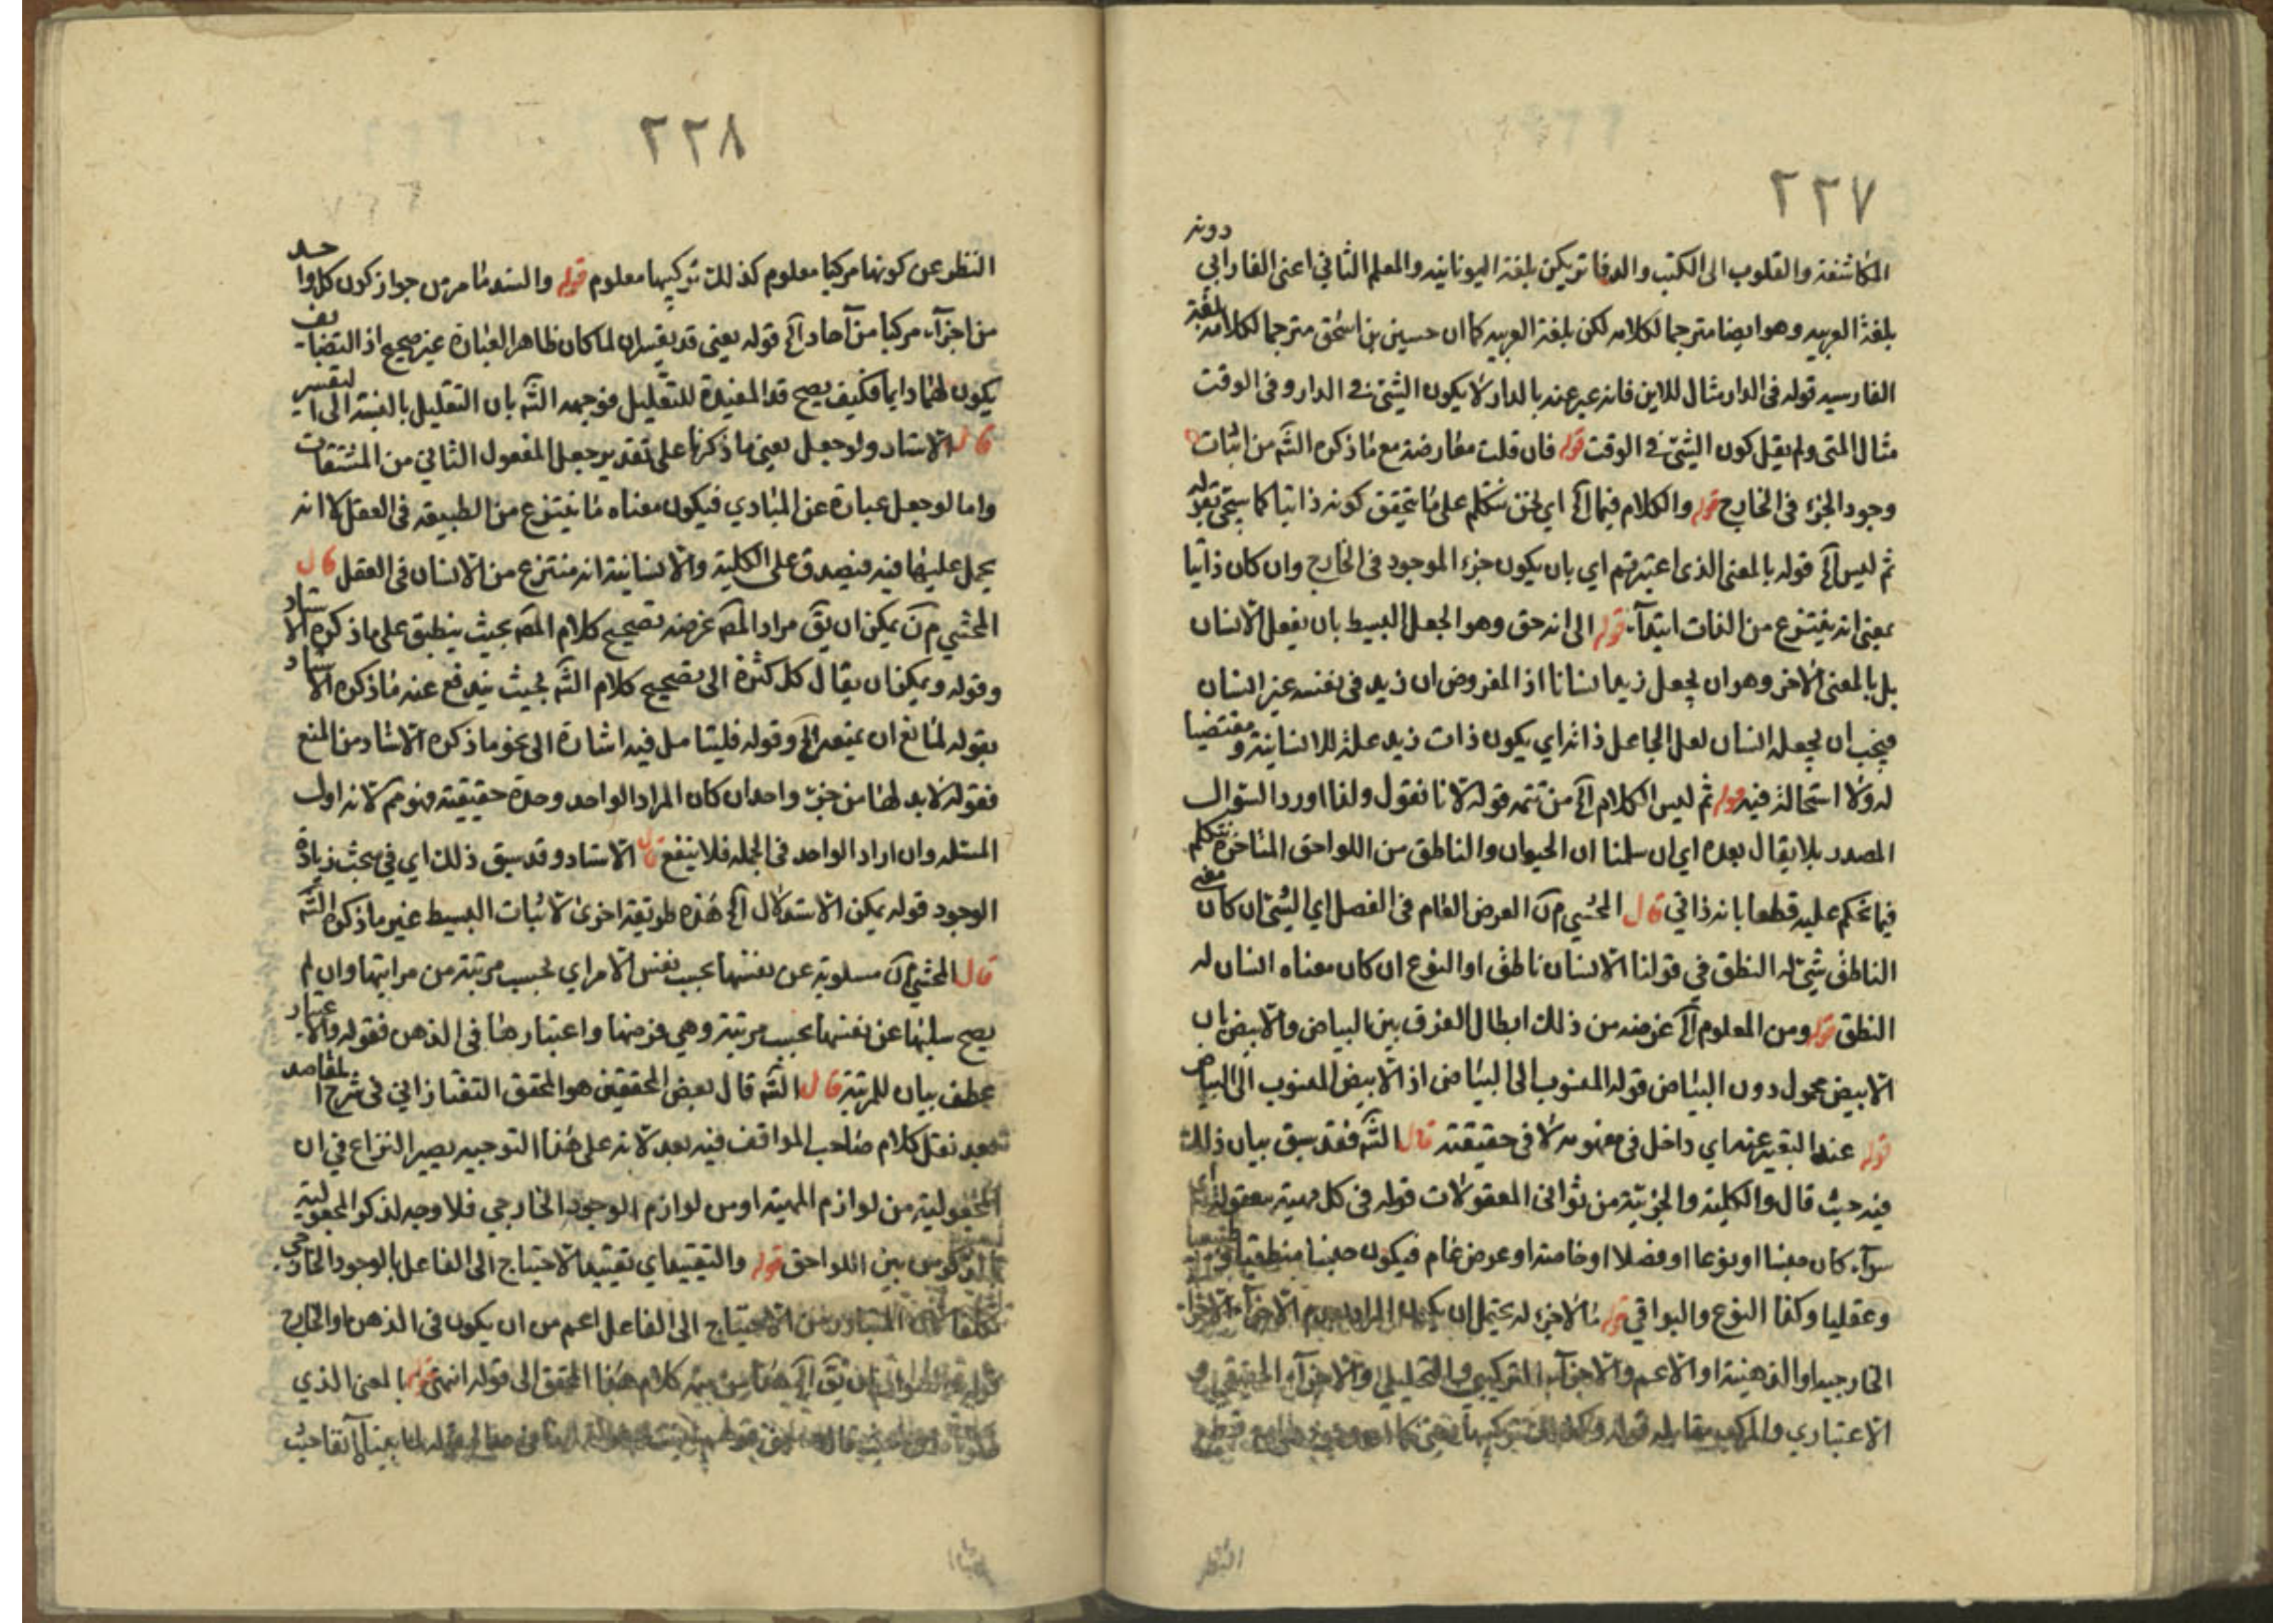 ٢٢٧
دونه
المكاشفة والقلوب الى الكتب والدفاتر يكن بلغة اليونانيه والمعلم الثاني اعنى الفارابي
بلغة العربيه وهو ايضا مترجما لكلامه لكن بلغة العربيه كما ان حسين بن اسحق مترجما لكلامه بلغة
الفارسيه قوله فى الدار مثال للاين فانه عبر عنه بالدار لا يكون الشئ فى الدار وفى الوقت
مثال المتى ولم يقل كون الشئ فى الوقت قوله فان قلت معارضة مع ما ذكره الشه من اثبات
وجود الجزء فى الخارج قوله والكلام فيما آلخ اي نحن نتكلم على ما يتحقق كونه ذاتيا كما سيجئ
ثم ليس آلخ قوله بالمعنى الذى اعتبرتم اي بان يكون جزء الموجود فى الخارج وان كان ذاتيا
بمعنى انه ينتزع من الذات ابتدآء قوله الى انه حق وهو الجعل البسيط بان يفعل الانسان
بل بالمعنى الاخر وهو ان يجعل زيدا انسانا اذ المفروض ان زيد فى نفسه غير انسان
فيجب ان يجعله انسان لعل الجاعل ذاته اي يكون ذات زيد علة للانسانية ومقتضيا
له ولا استحالة فيه قوله ثم ليس الكلام آلخ من تتمه قوله لانا نقول ولذا اورد السؤال
المصدر بلا يقال بعده اي ان سلمنا ان الحيوان والناطق من اللواحق المتاخرة نتكلم
فيما نحكم عليه قطعا بانه ذاتي قال المحشي م ن العرض العام فى الفصل اي الشئ ان كان معنى
الناطق شئ له النطق في قولنا الانسان ناطق او النوع ان كان معناه انسان له
النطق قوله ومن المعلوم آلخ غرضه من ذلك ابطال الفرق بين البياض والابيض بان
الابيض محمول دون البياض قوله المنسوب الى البياض اذ الابيض المنسوب الى البياض
قوله عند التعبير عنه اي داخل فى مفهومه لا فى حقيقته قال الشه فقد سبق بيان ذلك
فيه حيث قال والكلية والجزئية من ثوانى المعقولات قوله فى كل مهية معقولة اي
سوآء كان جنسا او نوعا او فصلا او خاصة او عرض عام فيكون جنسا منطقيا و
وعقليا وكذا النوع والبواقي قوله ما لا جزء له يحتمل ان يكون المراد
الخارجيه او الذهنية او الاعم والاجزآء التركيبي والتحليلي والاجزآء الحقيقي و
الاعتباري والمركب مقابله قوله وكذلك تركيبها
النظر
٢٢٨
النظر عن كونها مركبا معلوم كذلك تركيبها معلوم قوله والسند ما مر من جواز كون كل واحد
من اجزآء مركبا من آحاد آلخ قوله يعنى قد يقيس ان لما كان ظاهر العبارة غير صحيح اذ التضايف
يكون لهما دايما فكيف يصح قد المفيدة للتقليل فوجهه الشه بان التقليل بالنسبة الى
قال الاستاد ولو جعل يعني ما ذكرنا على تقدير جعل المفعول الثاني من المشتقات
واما لو جعل عبارة عن المبادي فيكون معناه ما ينتزع من الطبيعه فى العقل لا انه
يحمل عليها فيه فيصدق على الكلية والانسانية انه منتزع من الانسان فى العقل قال
المحشي م ن يمكن ان يق مراد المص غرضه تصحيح كلام المص بحيث ينطبق على ما ذكره الاستاد
وقوله ويمكن ان يقال كل كثرة الى تصحيح كلام الشه بحيث يندفع عنه ما ذكره الاستاد
بقوله لمانع ان يمنعه آلخ وقوله فليتامل فيه اشارة الى نحو ما ذكره الاستاد من المنع
فقوله لا بد لها من جزء واحد ان كان المراد الواحد وحدة حقيقته فنوعم لانه اول
المسئله وان اراد الواحد فى الجمله فلا ينفع قال الاستاد وقد سبق ذلك اي في مبحث زيادة
الوجود قوله يمكن الاستدلال آلخ هذه طريقة اخرى لاثبات البسيط غير ما ذكره الشه
قال المحشي م ن مسلوبة عن نفسها بحسب نفس الامر اي بحسب مرتبة من مراتبها وان لم
يصح سلبها عن نفسها بحسب مرتبة وهي فرضها واعتبارها فى الذهن فقوله والاعتبار
عطف بيان للمرتبة قال الشه قال بعض المحققين هو المحقق التفتازاني فى شرح المقاصد
بعد نقل كلام صاحب المواقف فيه بعد لانه على هذا التوجيه يصير النزاع في ان
المجعولية من لوازم المهية او من لوازم الوجود الخارجي فلا وجه لذكر المجعولية
من بين اللواحق قوله والتقييد اي تقييد الاحتياج الى الفاعل بالوجود الخارجي
تكلفا المتبادر من الاحتياج الى الفاعل اعم من ان يكون فى الذهن او الخارج
ان يق آلخ هذا من تتمه كلام هذا المحقق الى قوله انتهى قوله بالمعنى الذي